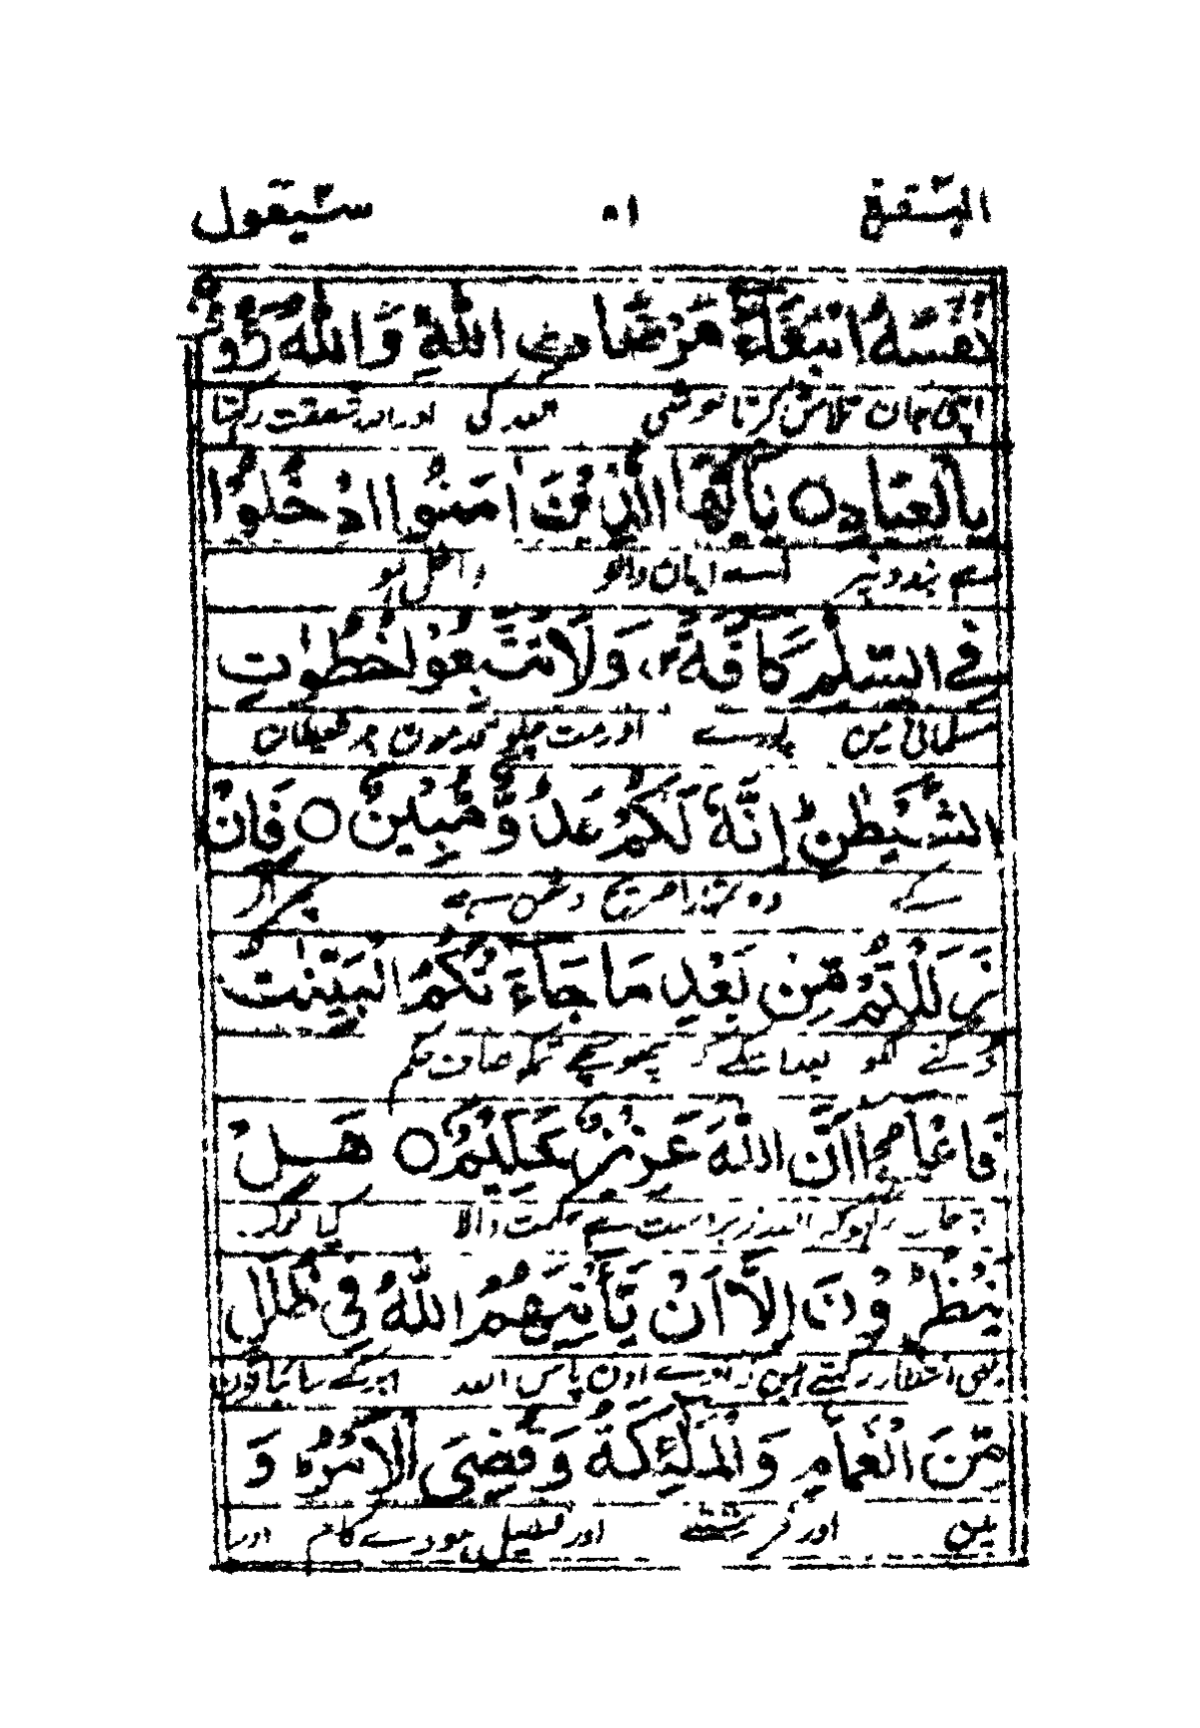 البقرة ۵۱ سيقول
نَفْسَهُ ابْتِغَاءَ مَرْضَاتِ اللّٰهِ وَاللّٰهُ رَءُوْفٌ
اپنی جان تلاش کرنا خوشی اللہ کی اور اللہ شفقت رکھتا
بِالْعِبَادِ ○ يٰاَيُّهَا الَّذِيْنَ اٰمَنُوا ادْخُلُوْا
ہے بندونپر اے ایمان والو داخل ہو
فِي السِّلْمِ كَآفَّةً وَلَا تَتَّبِعُوْا خُطُوٰتِ
مسلمانی میں پورے اور مت چلو قدموں پر شیطان
الشَّيْطٰنِ اِنَّهٗ لَكُمْ عَدُوٌّ مُّبِيْنٌ ○ فَاِنْ
کے وہ تمہارا صریح دشمن ہے پھر اگر
زَلَلْتُمْ مِّنْ بَعْدِ مَا جَآءَتْكُمُ الْبَيِّنٰتُ
بعد اسکے کہ پہونچے تمکو صاف حکم
فَاعْلَمُوْا اَنَّ اللّٰهَ عَزِيْزٌ حَكِيْمٌ ○ هَلْ
جان رکھو کہ اللہ زبردست ہے حکمت والا کیا لوگ
يَنْظُرُوْنَ اِلَّا اَنْ يَّأْتِيَهُمُ اللّٰهُ فِيْ ظُلَلٍ
یہی انتظار رکھتے ہیں کہ آوے اون پاس اللہ ابر کے سائبانون
مِّنَ الْغَمَامِ وَالْمَلٰٓئِكَةُ وَقُضِيَ الْاَمْرُ وَ
میں اور فرشتے اور فیصل ہووے کام اور